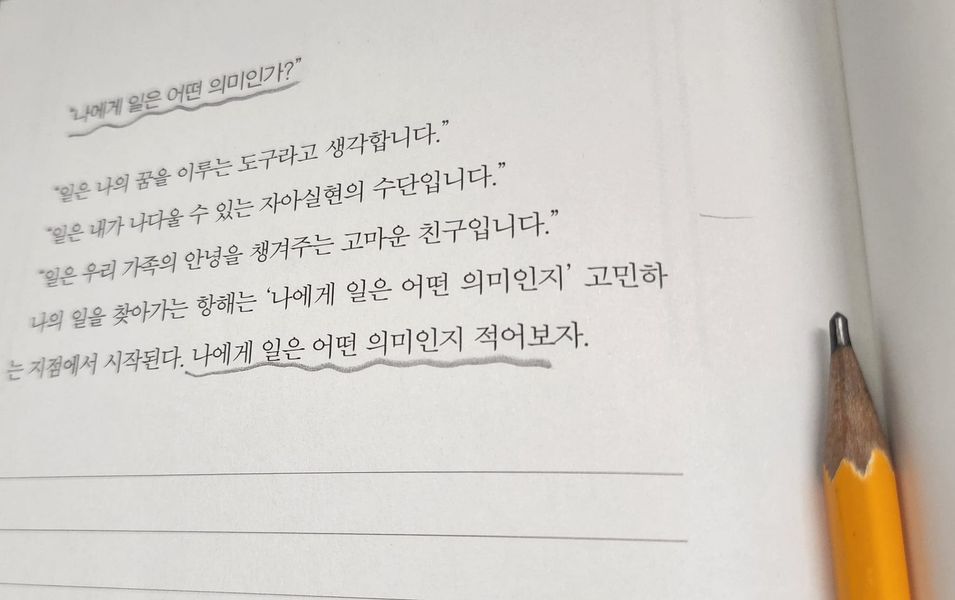 "나에게 일은 어떤 의미인가?"
"일은 나의 꿈을 이루는 도구라고 생각합니다."
"일은 내가 나다울 수 있는 자아실현의 수단입니다."
"일은 우리 가족의 안녕을 챙겨주는 고마운 친구입니다."
나의 일을 찾아가는 항해는 '나에게 일은 어떤 의미인지' 고민하
는 지점에서 시작된다. 나에게 일은 어떤 의미인지 적어보자.